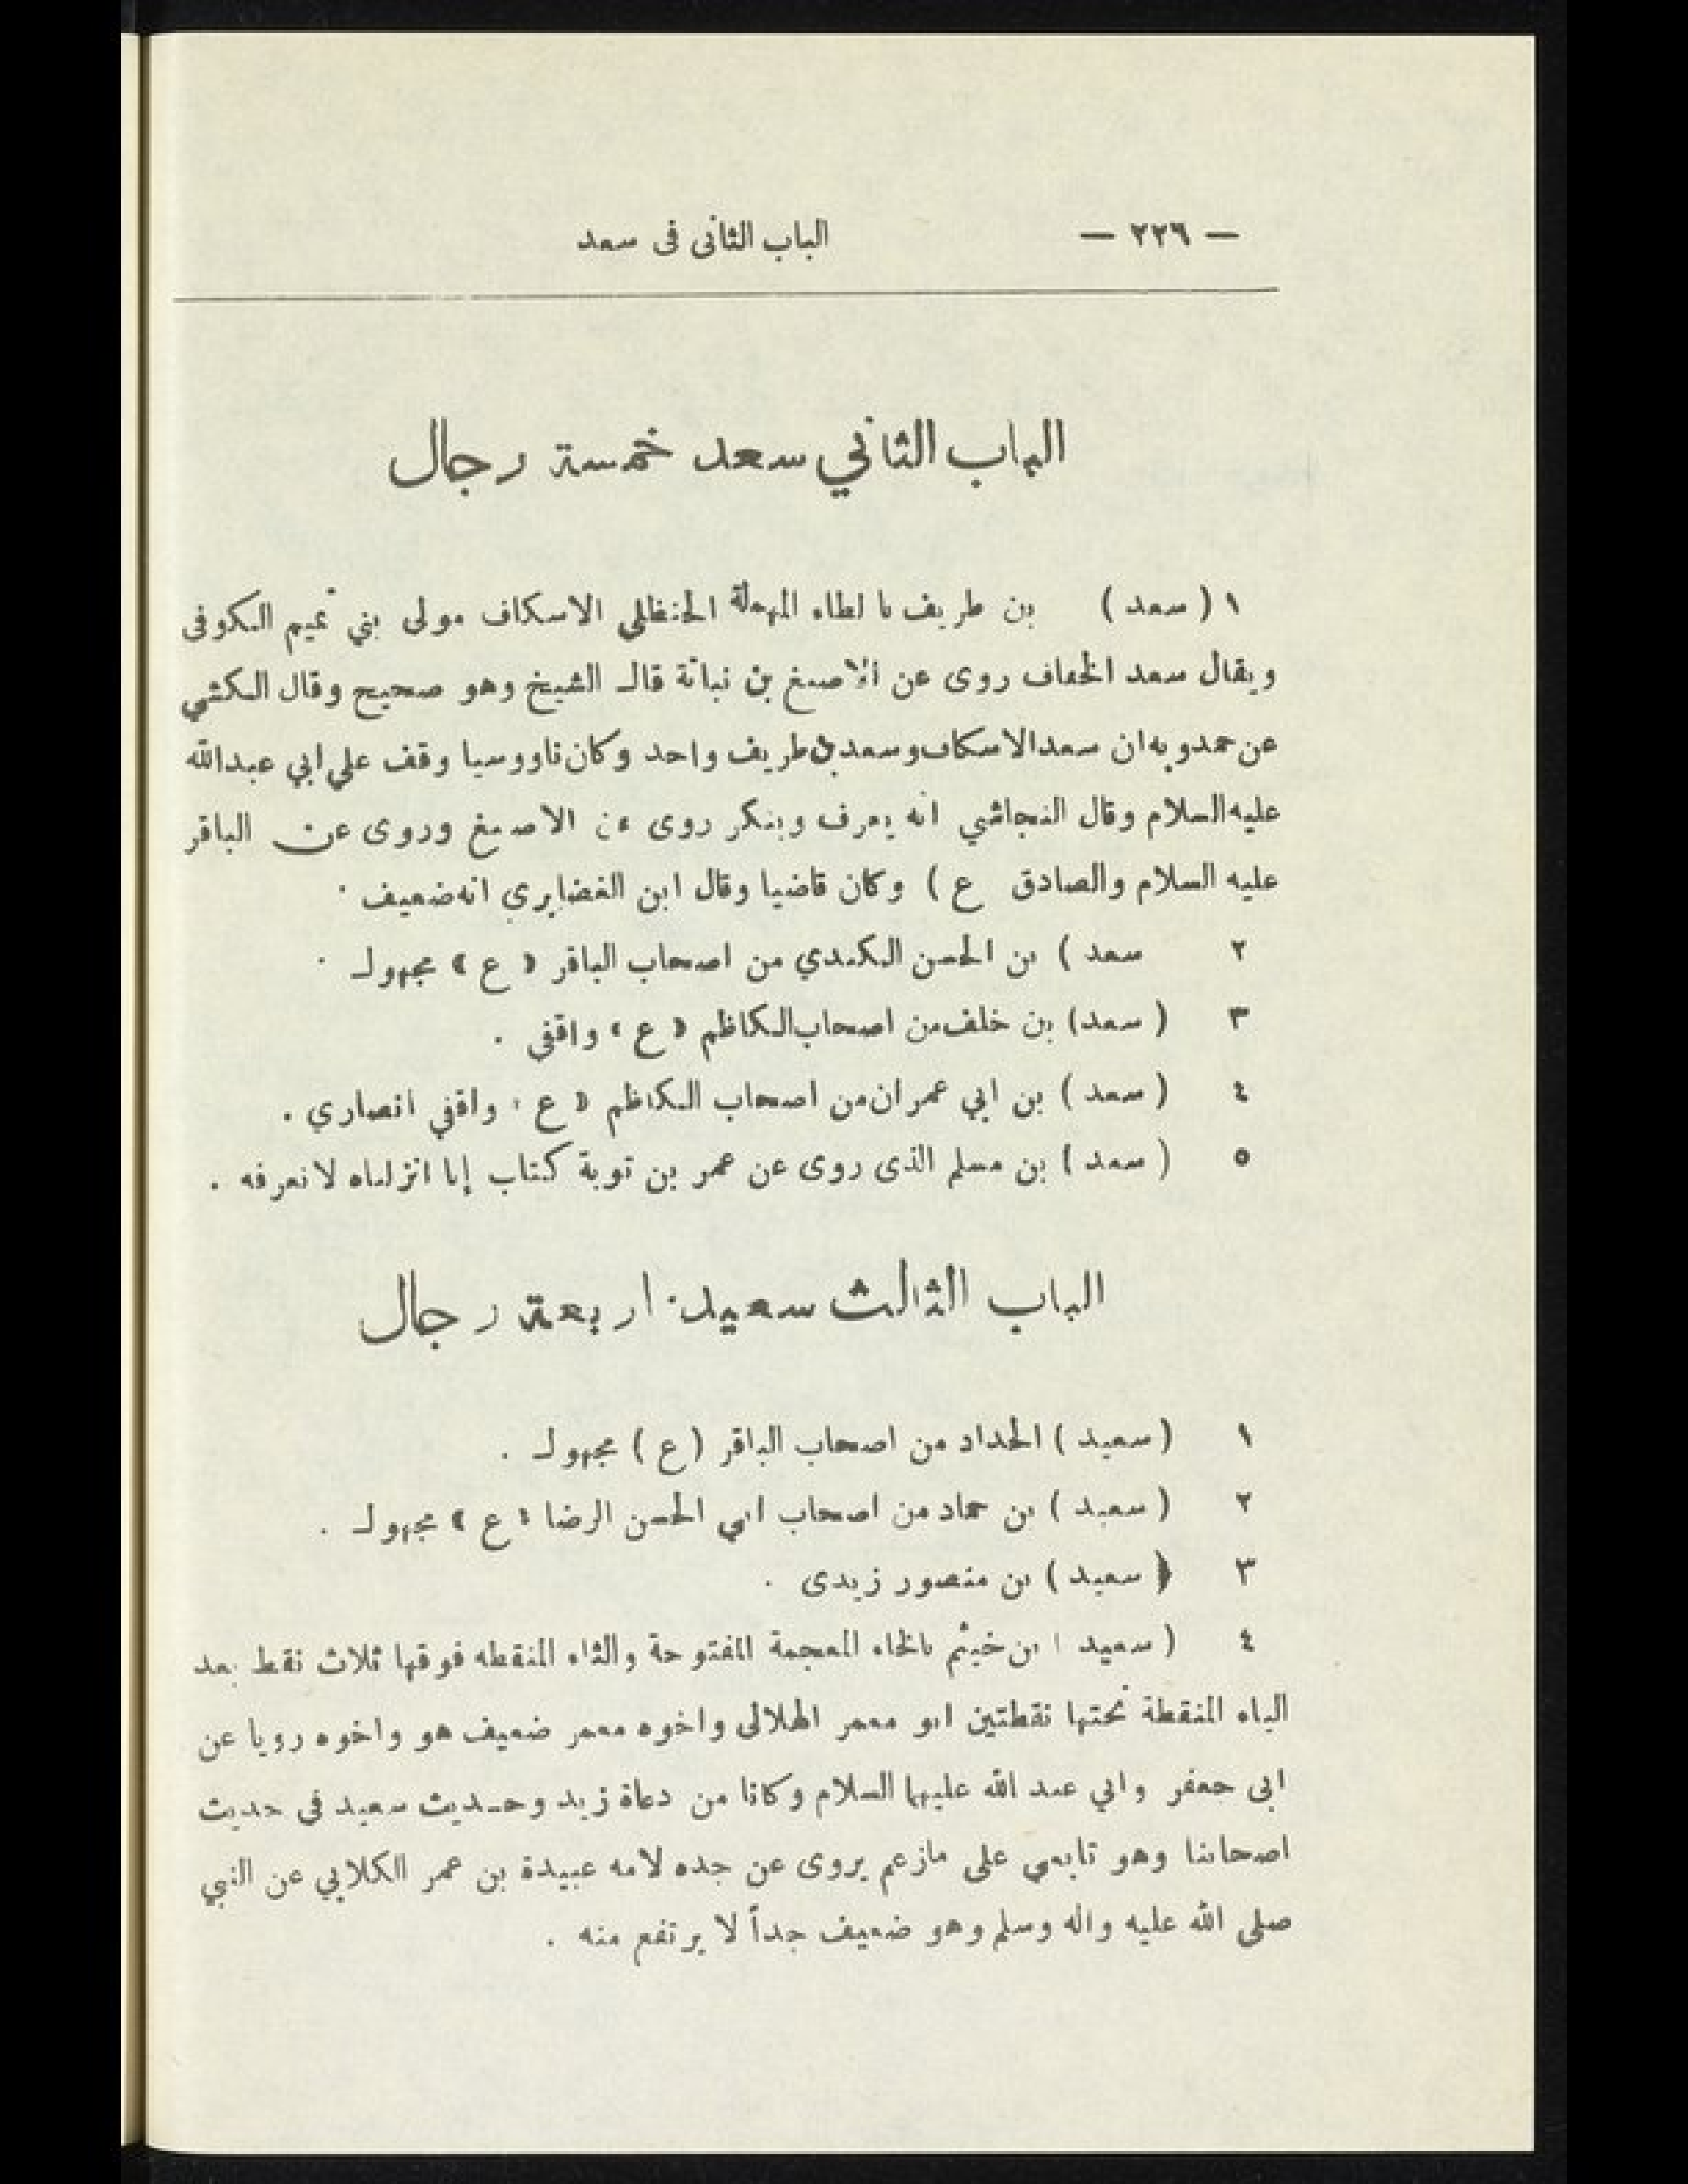 — ٢٢٦ — الباب الثانى فى سعد
الباب الثاني سعد خمسة رجال
١ ( سعد ) بن طريف بالطاء المهملة الحنظلي الاسكاف مولى بني تميم الكوفى
ويقال سعد الخفاف روى عن الاصبغ بن نباتة قال الشيخ وهو صحيح وقال الكشي
عن حمدويه ان سعد الاسكاف وسعد بن طريف واحد وكان ناووسيا وقف على ابي عبدالله
عليه السلام وقال النجاشي انه يعرف وينكر روى عن الاصبغ وروى عن الباقر
عليه السلام والصادق ع ) وكان قاضيا وقال ابن الغضايري انه ضعيف .
٢ سعد ) بن الحسن الكندي من اصحاب الباقر « ع » مجهول .
٣ ( سعد ) بن خلف من اصحاب الكاظم « ع » واقفى .
٤ ( سعد ) بن ابي عمران من اصحاب الكاظم « ع » واقفي انصاري .
٥ ( سعد ) بن مسلم الذى روى عن عمر بن توبة كتاب إنا انزلناه لا نعرفه .
الباب الثالث سعيد . اربعة رجال
١ ( سعيد ) الحداد من اصحاب الباقر ( ع ) مجهول .
٢ ( سعيد ) بن حماد من اصحاب ابي الحسن الرضا « ع » مجهول .
٣ ( سعيد ) بن منصور زيدى .
٤ ( سعيد ) بن خيثم بالخاء المعجمة المفتوحة والثاء المنقطه فوقها ثلاث نقط بعد
الياء المنقطة تحتها نقطتين ابو معمر الهلالى واخوه معمر ضعيف هو واخوه رويا عن
ابى جعفر وابي عبد الله عليهما السلام وكانا من دعاة زيد وحديث سعيد فى حديث
اصحابنا وهو تابعي على مازعم يروى عن جده لامه عبيدة بن عمر الكلابي عن النبي
صلى الله عليه واله وسلم وهو ضعيف جداً لا يرتفع منه .